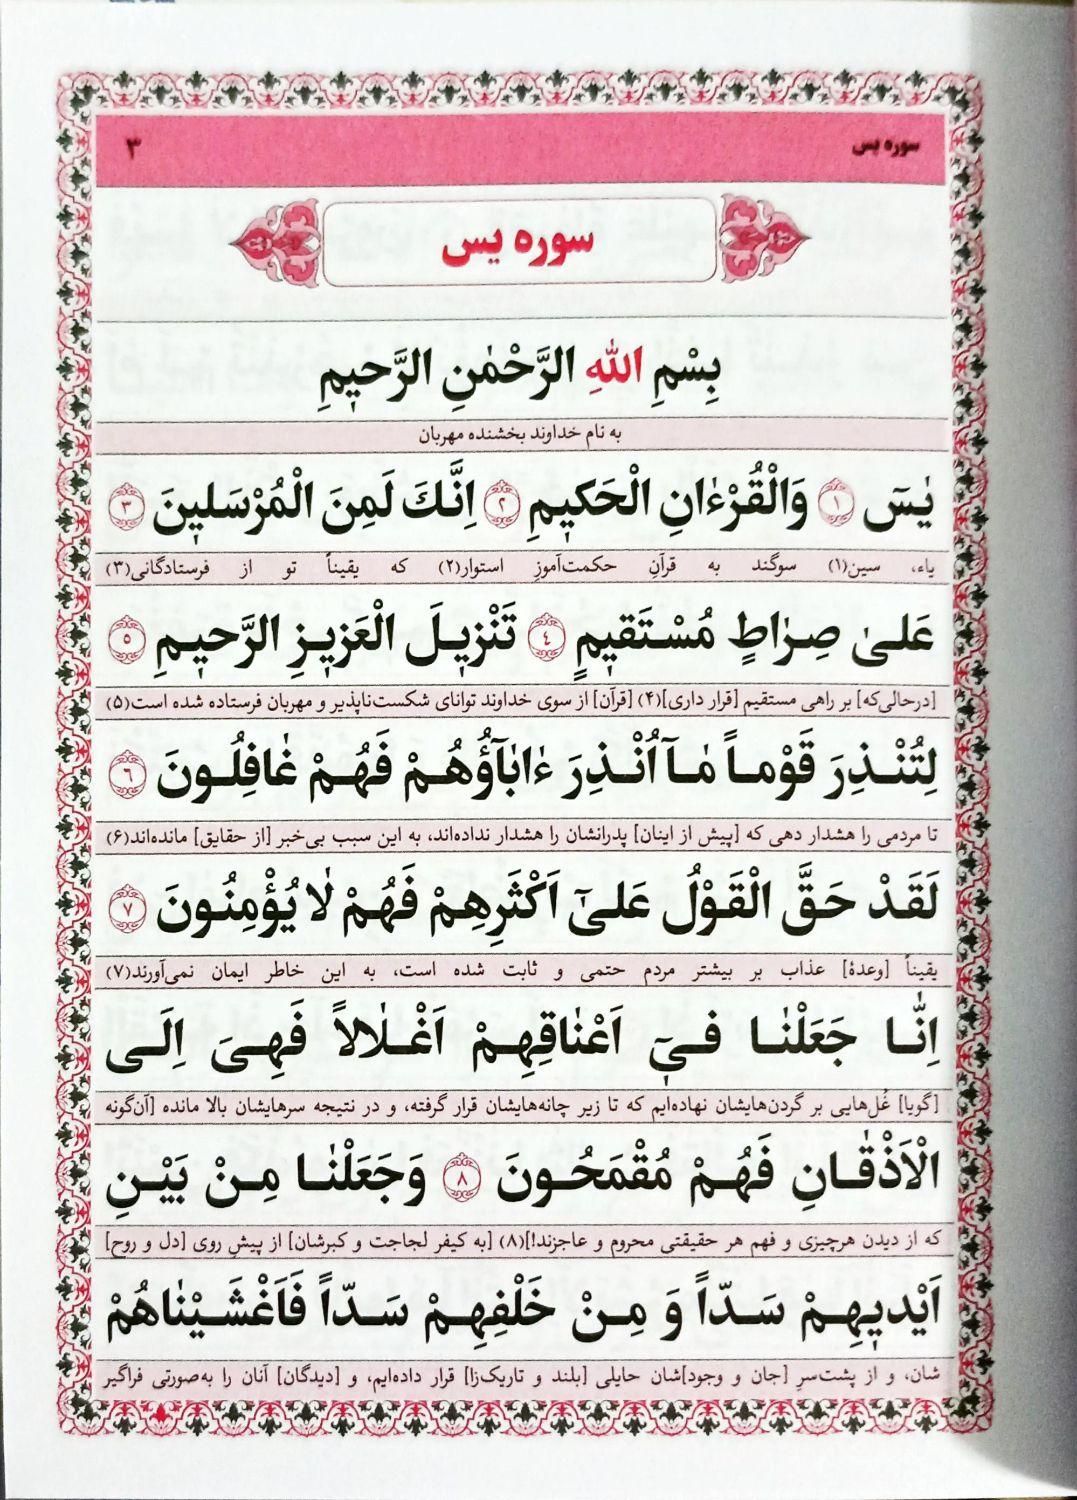 سوره یس
۳
سوره یس
بِسْمِ اللهِ الرَّحْمٰنِ الرَّحیمِ
به نام خداوند بخشنده مهربان
یٰسٓ ﴿١﴾ وَالْقُرْءٰانِ الْحَکیمِ ﴿٢﴾ اِنَّكَ لَمِنَ الْمُرْسَلینَ ﴿٣﴾
یاء، سین(۱) سوگند به قرآنِ حکمت‌آموزِ استوار(۲) که یقیناً تو از فرستادگانی(۳)
عَلیٰ صِرٰاطٍ مُسْتَقیمٍ ﴿٤﴾ تَنْزیلَ الْعَزیزِ الرَّحیمِ ﴿٥﴾
[درحالی‌که] بر راهی مستقیم [قرار داری](۴) [قرآن] از سوی خداوند توانای شکست‌ناپذیر و مهربان فرستاده شده است(۵)
لِتُنْذِرَ قَوْماً مٰٓا اُنْذِرَ ءٰابٰآؤُهُمْ فَهُمْ غٰافِلُونَ ﴿٦﴾
تا مردمی را هشدار دهی که [پیش از اینان] پدرانشان را هشدار نداده‌اند، به این سبب بی‌خبر [از حقایق] مانده‌اند(۶)
لَقَدْ حَقَّ الْقَوْلُ عَلیٰٓ اَکْثَرِهِمْ فَهُمْ لٰا یُؤْمِنُونَ ﴿٧﴾
یقیناً [وعدۀ] عذاب بر بیشتر مردم حتمی و ثابت شده است، به این خاطر ایمان نمی‌آورند(۷)
اِنّٰا جَعَلْنٰا فیٓ اَعْنٰاقِهِمْ اَغْلٰالاً فَهِیَ اِلَی
[گویا] غُل‌هایی بر گردن‌هایشان نهاده‌ایم که تا زیر چانه‌هایشان قرار گرفته، و در نتیجه سرهایشان بالا مانده [آن‌گونه
الْاَذْقٰانِ فَهُمْ مُقْمَحُونَ ﴿٨﴾ وَجَعَلْنٰا مِنْ بَیْنِ
که از دیدن هرچیزی و فهم هر حقیقتی محروم و عاجزند!](۸) [به کیفر لجاجت و کبرشان] از پیشِ روی [دل و روح]
اَیْدیهِمْ سَدّاً وَ مِنْ خَلْفِهِمْ سَدّاً فَاَغْشَیْنٰاهُمْ
شان، و از پشت‌سرِ [جان و وجود]شان حایلی [بلند و تاریک‌زا] قرار داده‌ایم، و [دیدگان] آنان را به‌صورتی فراگیر